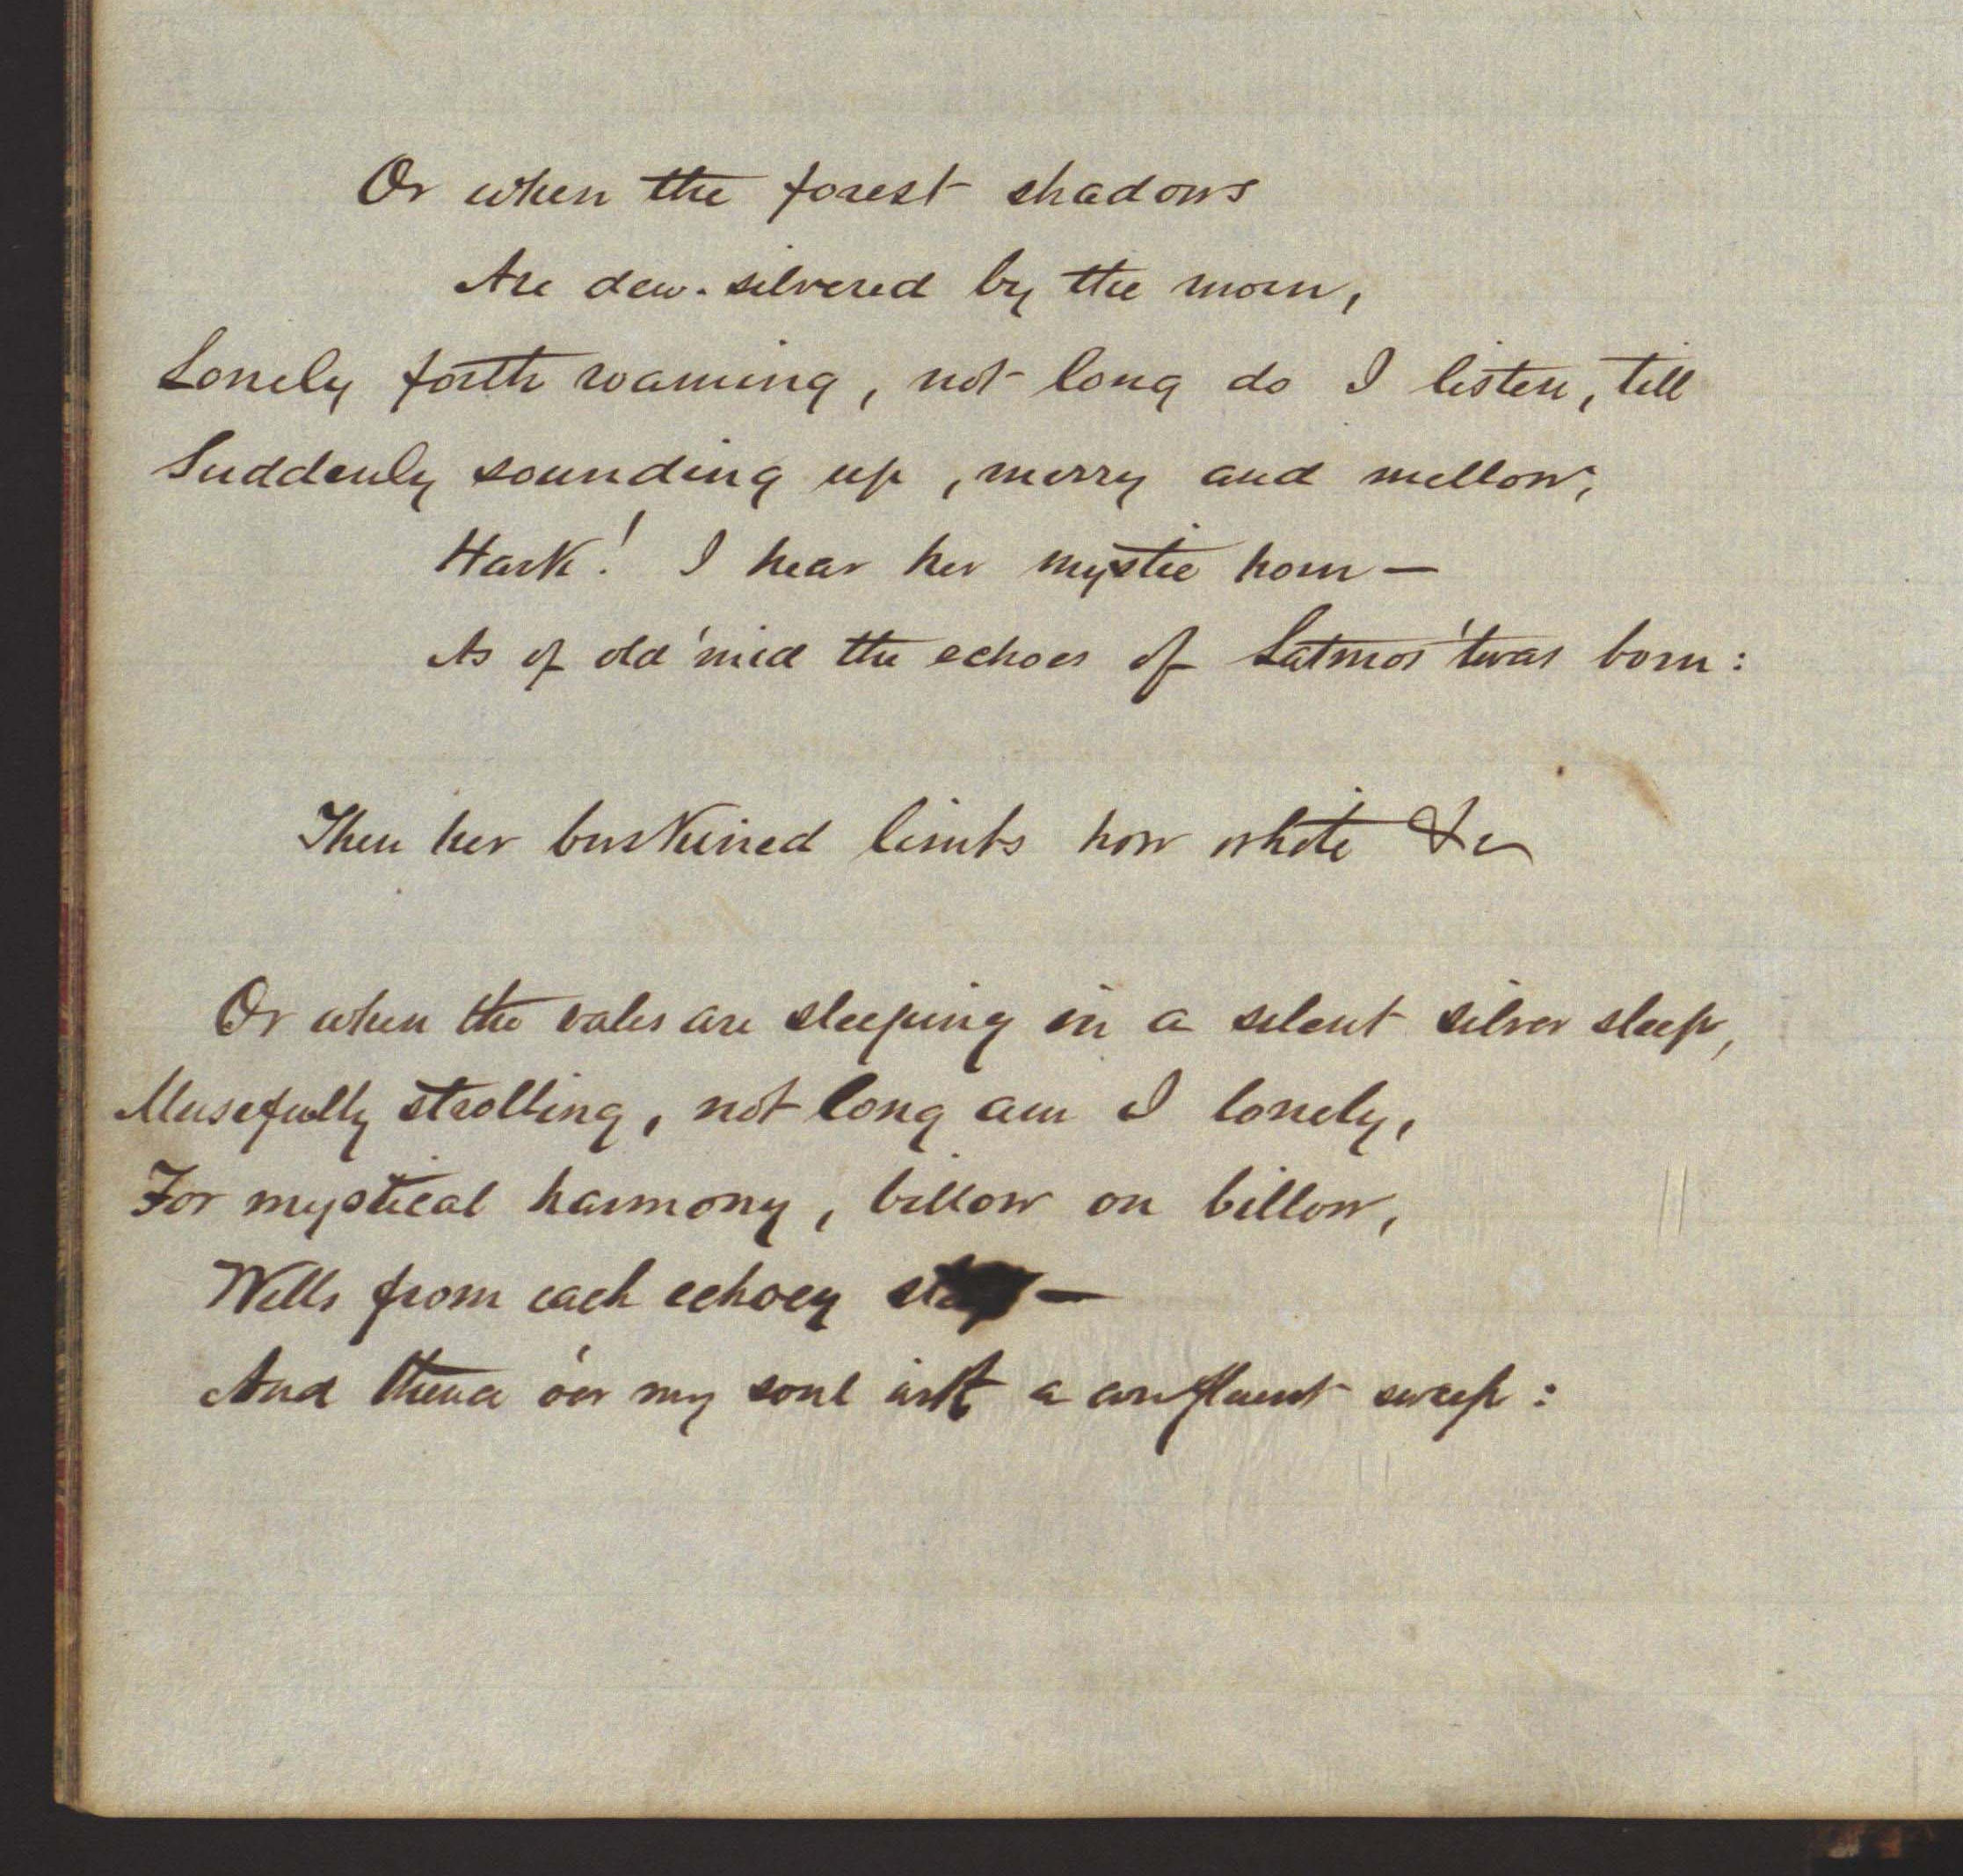 Or when the forest shadows
Are dew-silvered by the morn,
Lonely forth roaming, not long do I listen, till
Suddenly sounding up, merry and mellow,
Hark! I hear her mystic horn—
As of old 'mid the echoes of Latmos 'twas born:
Then her buskined limbs how white &c
Or when the vales are sleeping in a silent silver sleep,
Musefully strolling, not long am I lonely,
For mystical harmony, billow on billow,
Wells from each echoey —
And thence o'er my soul in a confluent sweep: